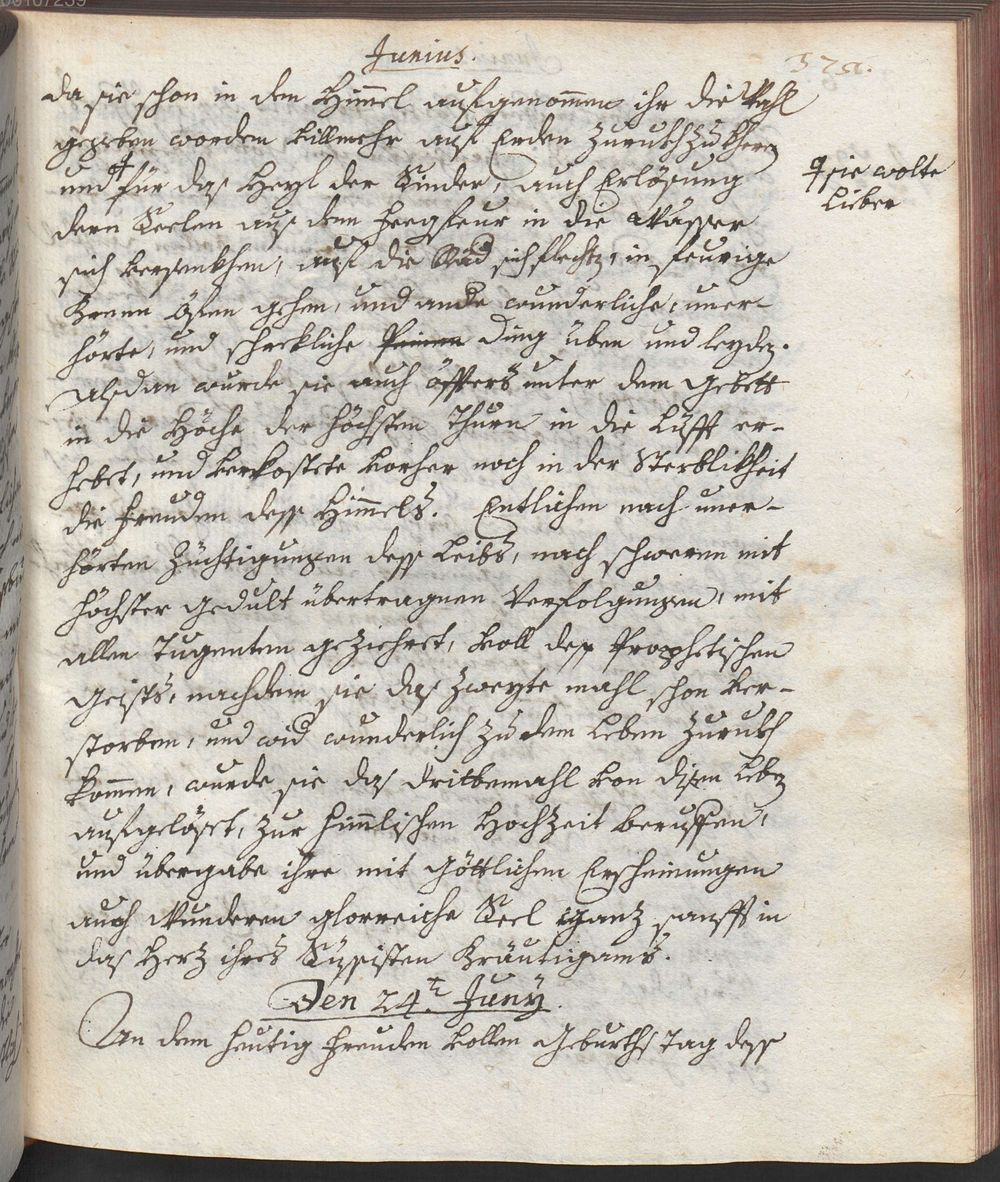 Junius.
371.
da sie schon in dem Himmel aufgenommen ihr die Wahl
gegeben worden villmehr auf Erden zurukh zu khern
und ╪ für das Heyl der Sünder, auch Erlösung
✝sie wolte
Lieber
dern Seelen aus dem Feegfeur in die Wasser
sich versenkhen, auf die Räd sich flechtn, in feurige
brenn öfen gehen, und ande wunderliche, uner-
hörte, und schrekliche Peinen Ding üben und leyden.
Alsdan wurde sie auch öffters unter dem Gebett
in die Höche der höchsten Thurn in die Lüfft er-
hebet, und verkostete vorher noch in der Sterblikheit
die Freuden dess Himmels. Entlichen nach uner-
hörten Züchtigungen dess Leibs, nach schweren mit
höchster Gedult übertragnen Verfolgungen, mit
allen Tugenten geziehret, voll dess Prophetischen
Geists, nachdem sie das zweyte mahl schon ver-
storben, und wid wunderlich zu dem Leben zurukh
kommen, wurde sie das drittemahl von disen Lebn
aufgelöset, zur himmlischen Hochzeit beruffen,
und übergabe ihre mit Göttlichen Erscheinungen
auch Wunderen glorreiche Seel ganz sanfft in
das Herz ihres Süssisten Bräutigams.
Den 24t. Juny.
An dem heutig freuden vollen Geburths Tag dess